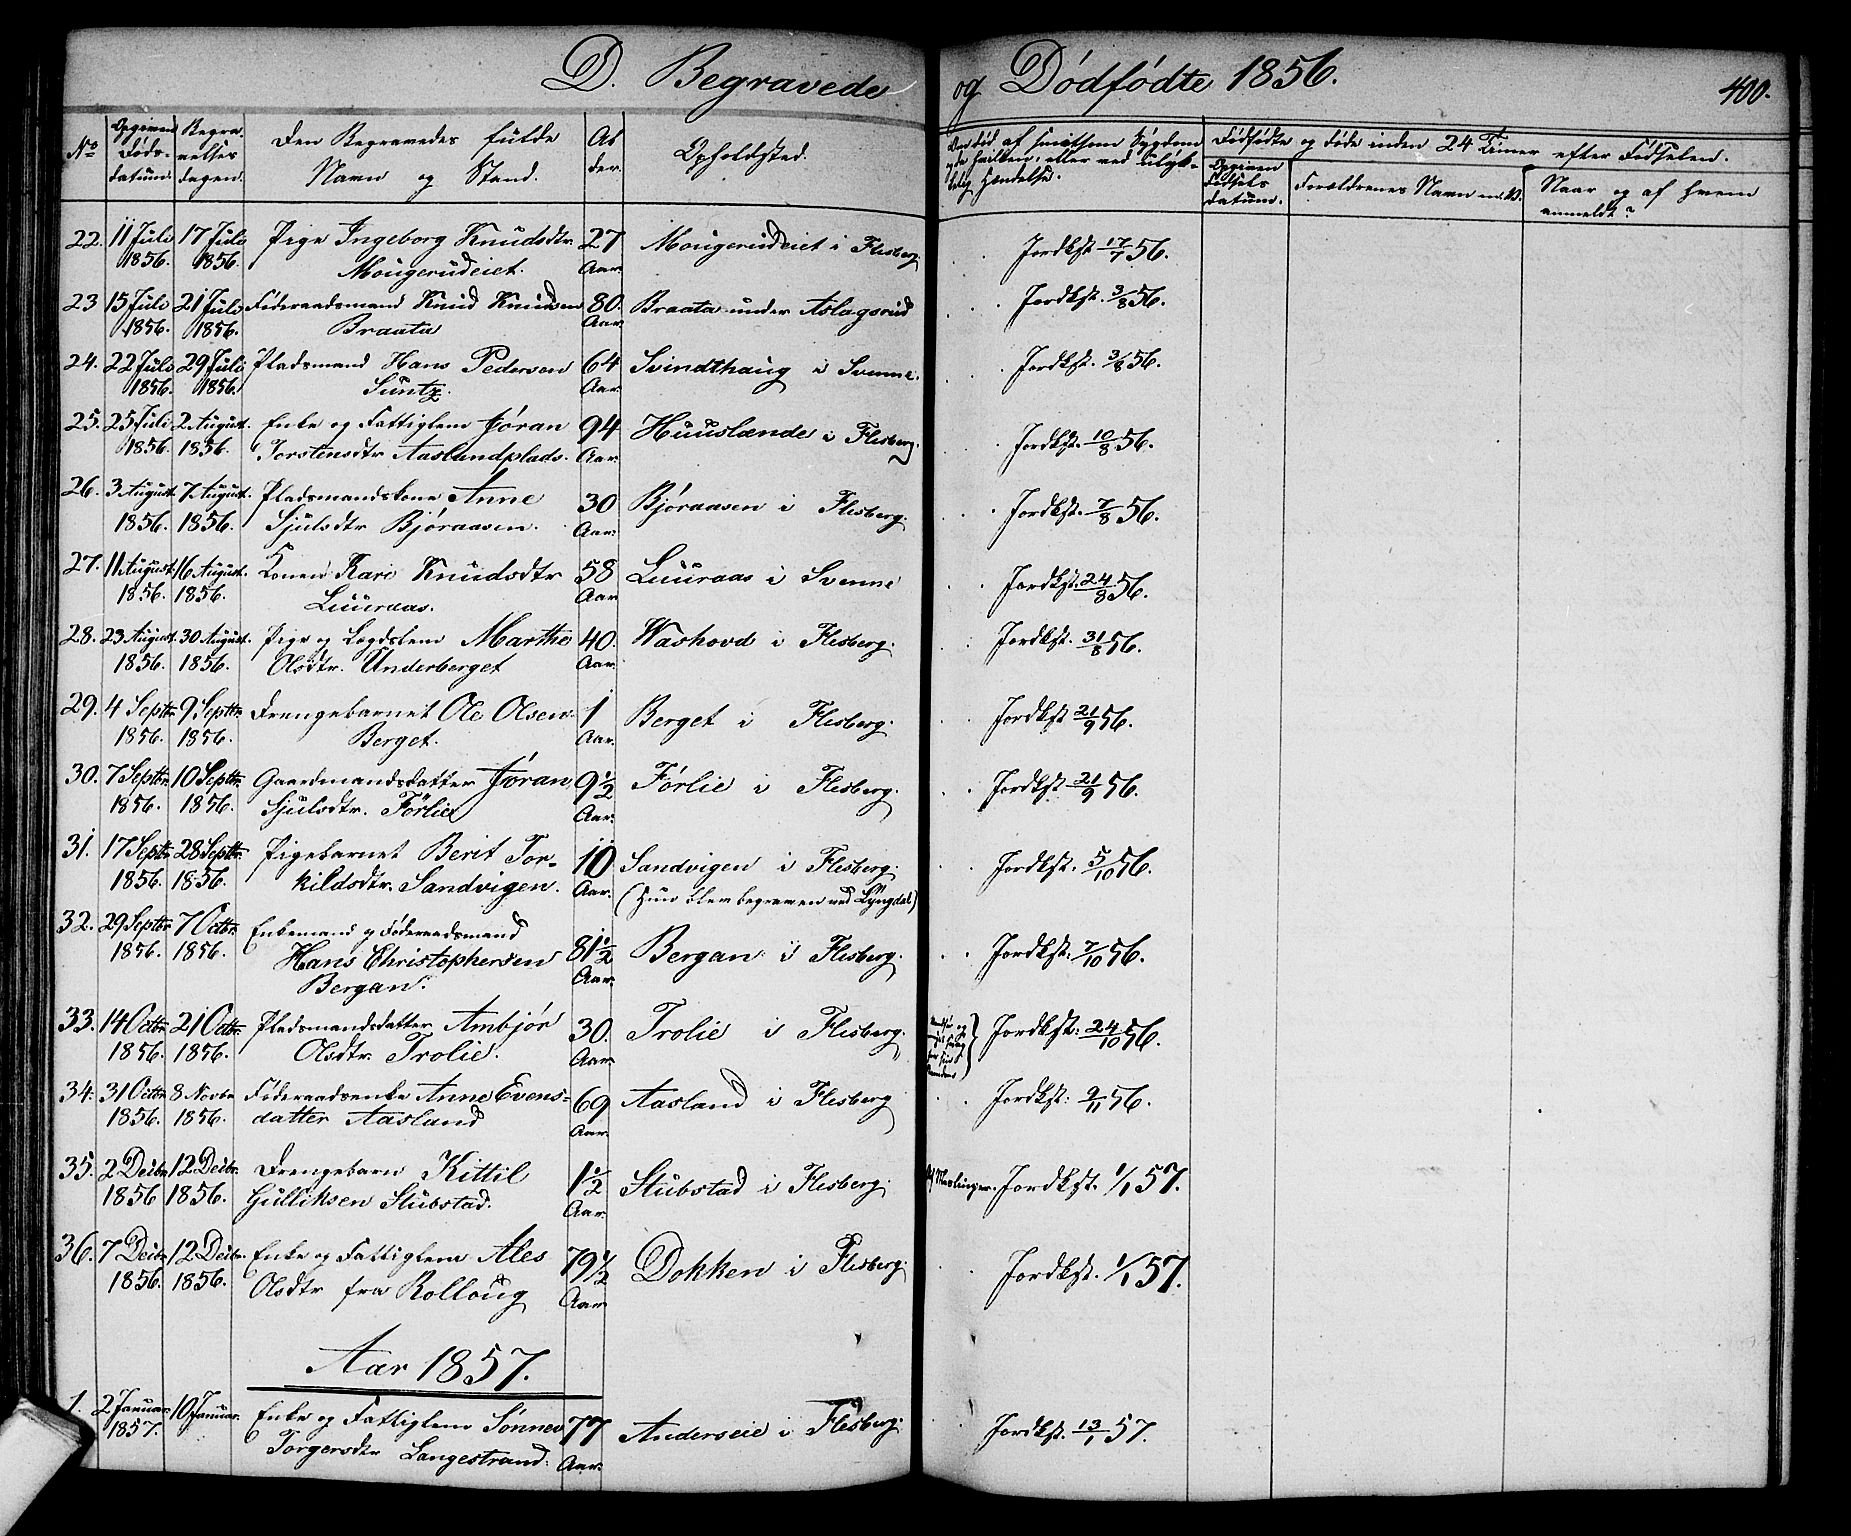 D. Begravede og Dødfødte 1856. 400.
No Opgiven Døds-datum. Begravelses dagen. Den Begravedes fulde Navn og Stand. Alder. Opholdsted. Om død af smitsom Sygdom og da hvilken, eller ved ulykkelig Hændelse. Dødfødte og døde inden 24 Timer efter Fødselen.
Opgiven Fødsels datum. Forældrenes Navn m.V. Naar og af hvem anmeldt?
22. 11 Juli 17 Juli Pige Ingeborg Knudsdtr. 27 Mougerudeiet i Flesberg Jordkst 17/7 56.
1856. 1856. Mougerudeiet. Aar.
23 15 Juli 21 Juli Føderaadsmand Knud Knudsen 80. Braata under Aslagsrud Jordkst. 3/8 56.
1856. 1856. Braata Aar.
24. 22 Juli 29 Juli Pladsmand Hans Pedersen 64 Svindthaug i Svenne. Jordkst. 3/8 56.
1856. 1856. Suntz. Aar.
25. 25 Juli 2 August. Enke og Fattiglem Jøran 94 Huuslænde i Flesberg. Jordkst. 10/8 56.
1856. 1856. Torstensdtr Aaslandplads. Aar.
26. 3 August. 7 August. Pladsmandskone Anne 30 Bjøraasen i Flesberg. Jordkst. 7/8 56.
1856. 1856. Sjulsdtr Bjøraasen. Aar.
27. 11 August. 16 August. Konen Kari Knudsdtr 58 Luuraas i Svenne Jordkst. 24/8 56.
1856. 1856. Luuraas. Aar
28. 23 August. 30 August. Pige og Lægdslem Marthe 40. Washovd i Flesberg. Jordkst. 31/8 56.
1856. 1856. Olsdtr. Underberget Aar.
29. 4 Septbr. 9 Septbr. Drengebarnet Ole Olsen 1 Berget i Flesberg. Jordkst 21/9 56.
1856. 1856. Berget. Aar.
30. 7 Septbr. 10 Septbr. Gaardmandsdatter Jøran 9 1/2 Førlie i Flesberg. Jordkst 21/9 56.
1856. 1856. Sjulsdtr. Førlie Aar.
31. 17 Septbr. 28 Septbr. Pigebarnet Berit Tor- 10 Sandvigen i Flesberg. Jordkst. 5/10 56.
1856. 1856. kildsdtr. Sandvigen. Aar. (Hun blev begraven ved Lyngdal)
32. 29 Septbr 7 Octbr. Enkemand og Føderaadsmand 81 1/2 Bergan i Flesberg. Jordkst. 7/10 56.
1856. 1856. Hans Christophersen Aar.
Bergan.
33. 14 Octbr. 21 Octbr. Pladsmandsdatter Ambjør 30. Trolie i Flesberg. Jordkst. 24/10 56.
1856. 1856. Olsdtr. Trolie. Aar.
34. 31 Octbr. 8 Novbr Føderaadsenke Anne Evens- 69 Aasland i Flesberg Jordkst. 9/11 56.
1856. 1856. datter Aasland Aar.
35. 2 Decbr. 12 Decbr. Drengebarn Kittil 1 1/2 Stubstad i Flesberg. Af Meslinger. Jordkst. 1/1 57.
1856 1856. Gulliksen Stubstad. Aar.
36. 7 Decbr. 12 Decbr. Enke og Fattiglem Ales 79 1/2 Dokken i Flesberg. Jordkst. 1/1 57.
1856. 1856. Olsdtr fra Rolloug Aar
Aar 1857.
1. 2 Januar. 10 Januar. Enke og Fattiglem Sønnev 77 Anderseie i Flesberg. Jordkst. 13/1 57.
1857. Torgersdtr Langestrand. Aar.